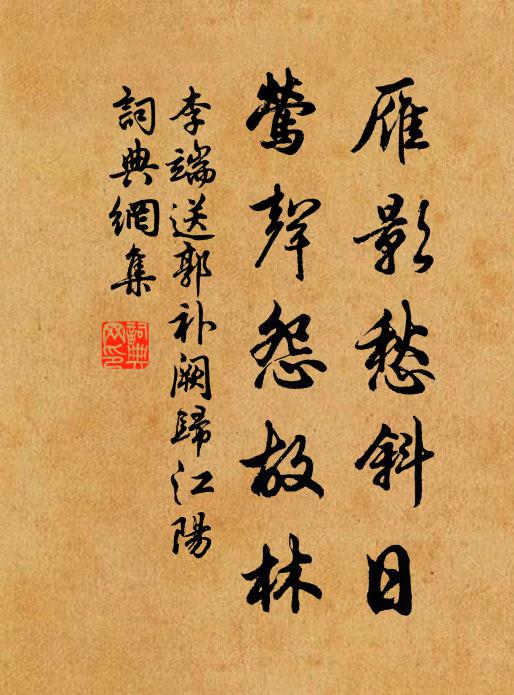 雁影愁斜日
鶯聲怨故林
李端送郭補闕歸江陽
詞典網集
詞典网印